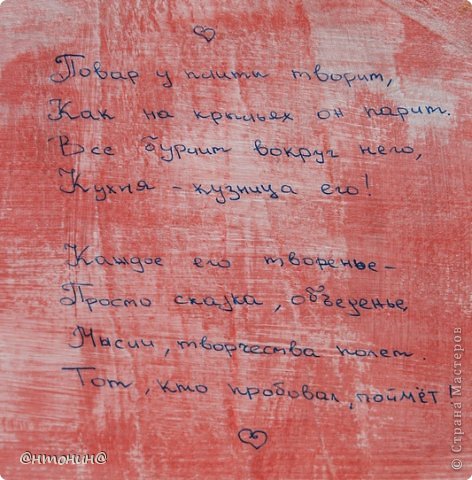 Повар у плиты творит,
Как на крыльях он парит.
Все бурлит вокруг него,
Кухня - кузница его!
Каждое его творенье -
Просто сказка, объеденье,
Мысли, творчества полет.
Тот, кто пробовал, поймёт!
@нтонин@
© Страна Мастеров